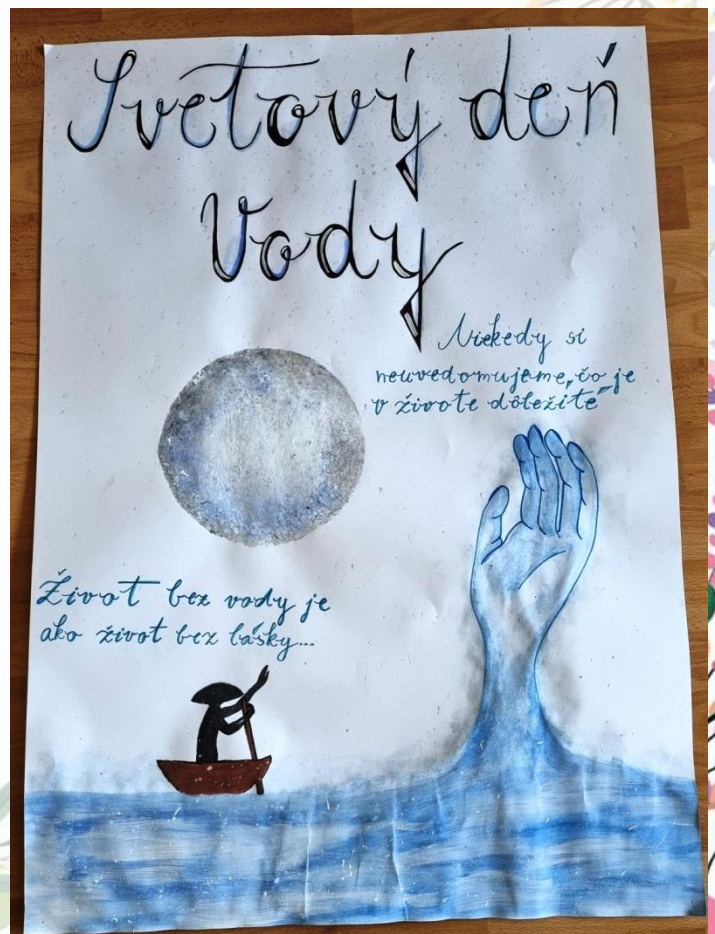 Svetový deň
Vody
Niekedy si
neuvedomujeme „čo je
v živote dôležité"
Život bez vody je
ako život bez lásky...